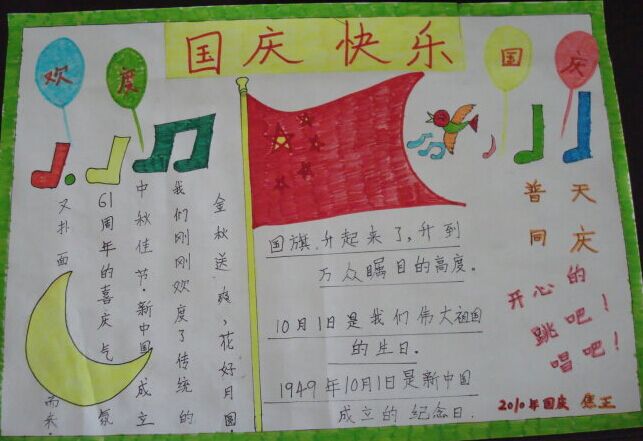 国庆快乐
欢度
国庆
金秋送爽，花好月圆，
我们刚刚欢度了传统的
中秋佳节·新中国成立
61周年的喜庆气氛
又扑面而来·
国旗升起来了，升到
万众瞩目的高度。
10月1日是我们伟大祖国
的生日.
1949年10月1日是新中国
成立的纪念日.
普天
同庆
开心的
跳吧！
唱吧！
2010年国庆